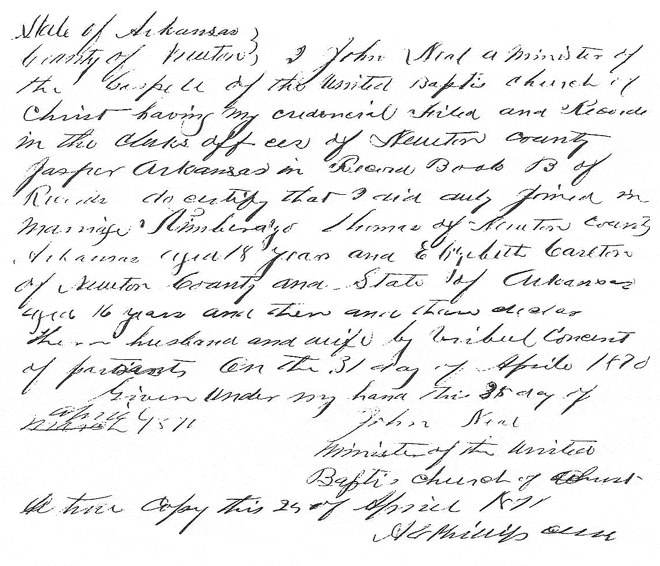 State of Arkansas }
County of Newton } I John Neal a minister of
the Gospell of the United Baptis church of
Christ having my credencial Filed and Records
in the Clerks offices of Newton County
Jasper Arkansas in Record Book B of
do certify that I did duly Joined in
marriage Thomas of Newton County
Arkansas aged 18 years and Elizebeth Carlton
of Newton County and State of Arkansas
aged 16 years and then and there declar
them husband and wife by Concent
of parients On the 31 day of Aprile 1870
Given Under my hand this 25 day of
april
march 1871
John Neal
minister of the United
Baptis church of Christ
A true Copy this 29 of Apriel 1871
Phillips